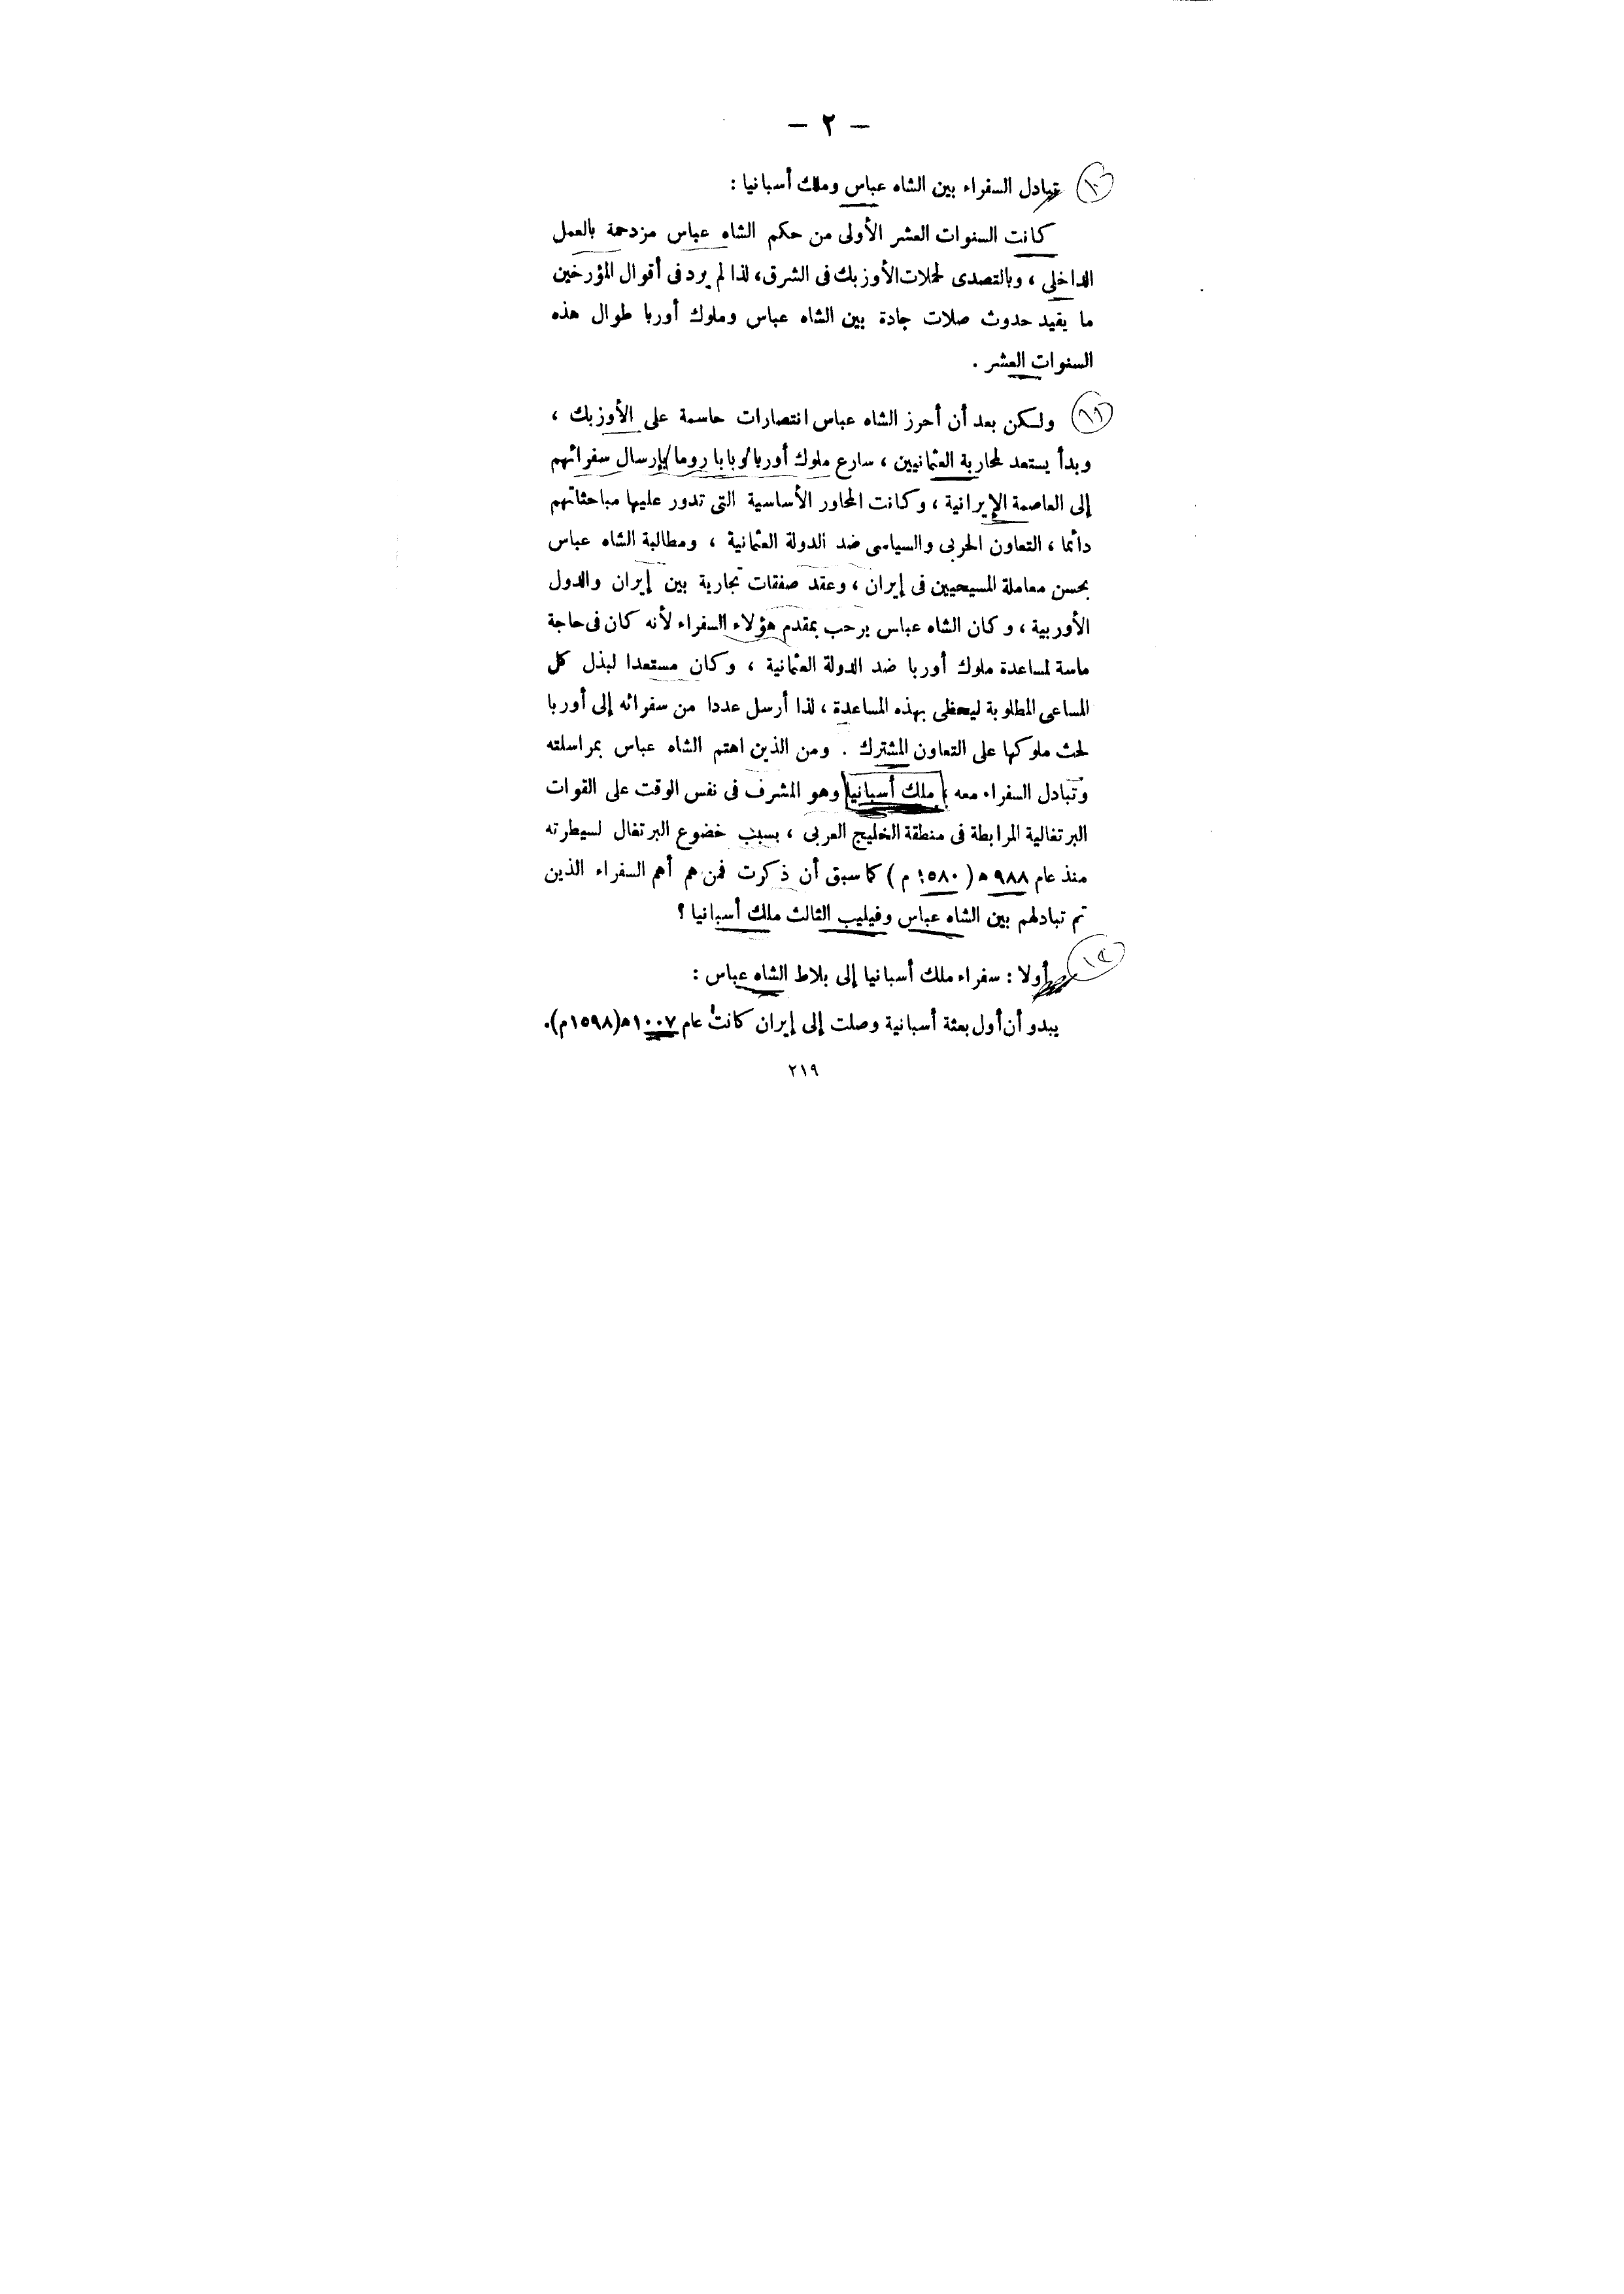 — ٢ —
١٠
تبادل السفراء بين الشاه عباس وملك أسبانيا :
كانت السنوات العشر الأولى من حكم الشاه عباس مزدحمة بالعمل
الداخلى ، وبالتصدى لحملات الأوزبك فى الشرق، لذا لم يرد فى أقوال المؤرخين
ما يفيد حدوث صلات جادة بين الشاه عباس وملوك أوربا طوال هذه
السنوات العشر .
١١
ولكن بعد أن أحرز الشاه عباس انتصارات حاسمة على الأوزبك ،
وبدأ يستعد لمحاربة العثمانيين ، سارع ملوك أوربا/وبابا روما/بإرسال سفرائهم
إلى العاصمة الإيرانية ، وكانت المحاور الأساسية التى تدور عليها مباحثاتهم
دائما ، التعاون الحربى والسياسى ضد الدولة العثمانية ، ومطالبة الشاه عباس
بحسن معاملة المسيحيين فى إيران ، وعقد صفقات تجارية بين إيران والدول
الأوربية ، وكان الشاه عباس يرحب بمقدم هؤلاء السفراء لأنه كان فى حاجة
ماسة لمساعدة ملوك أوربا ضد الدولة العثمانية ، وكان مستعدا لبذل كل
المساعى المطلوبة ليحظى بهذه المساعدة ، لذا أرسل عددا من سفرائه إلى أوربا
لحث ملوكها على التعاون المشترك . ومن الذين اهتم الشاه عباس بمراسلته
وتبادل السفراء معه ، ملك أسبانيا وهو المشرف فى نفس الوقت على القوات
البرتغالية المرابطة فى منطقة الخليج العربى ، بسبب خضوع البرتغال لسيطرته
منذ عام ٩٨٨ ه ( ١٥٨٠ م ) كما سبق أن ذكرت فمن هم أهم السفراء الذين
تم تبادلهم بين الشاه عباس وفيليب الثالث ملك أسبانيا ؟
أولا : سفراء ملك أسبانيا إلى بلاط الشاه عباس :
يبدو أن أول بعثة أسبانية وصلت إلى إيران كانت عام ١٠٠٧ه(١٥٩٨م).
٢١٩